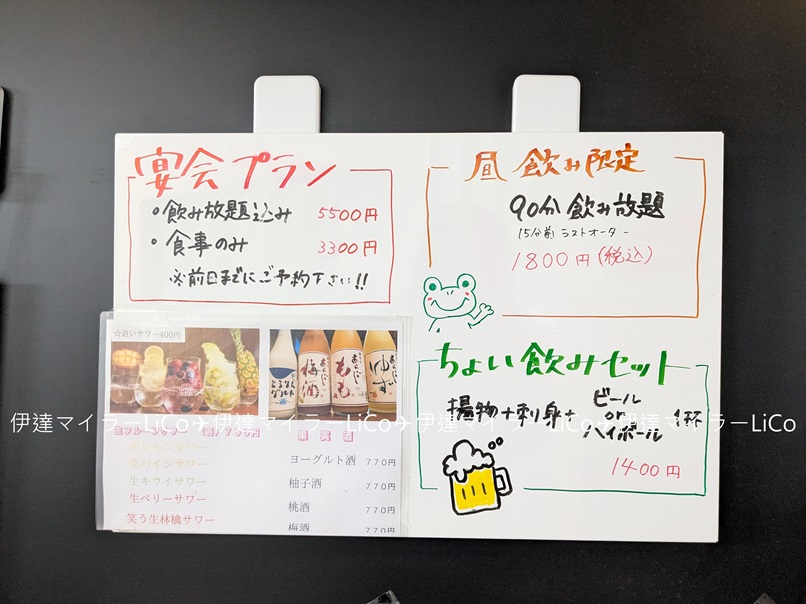 宴会プラン
・飲み放題込み 5500円
・食事のみ 3300円
※前日までにご予約下さい!!
昼飲み限定
90分飲み放題
15分前ラストオーダー
1800円(税込)
ちょい飲みセット
揚物+刺身+ ビール or ハイボール 1杯
1400円
☆追いサワー400円
梅酒
あらごし
もも
あらごし
ゆず
生フルーツサワー
果実酒
生レモンサワー
生パインサワー
生キウイサワー
生ベリーサワー
笑う生林檎サワー
ヨーグルト酒 770円
柚子酒 770円
桃酒 770円
梅酒 770円
伊達マイラーLiCo✈伊達マイラーLiCo✈伊達マイラーLiCo✈伊達マイラーLiCo